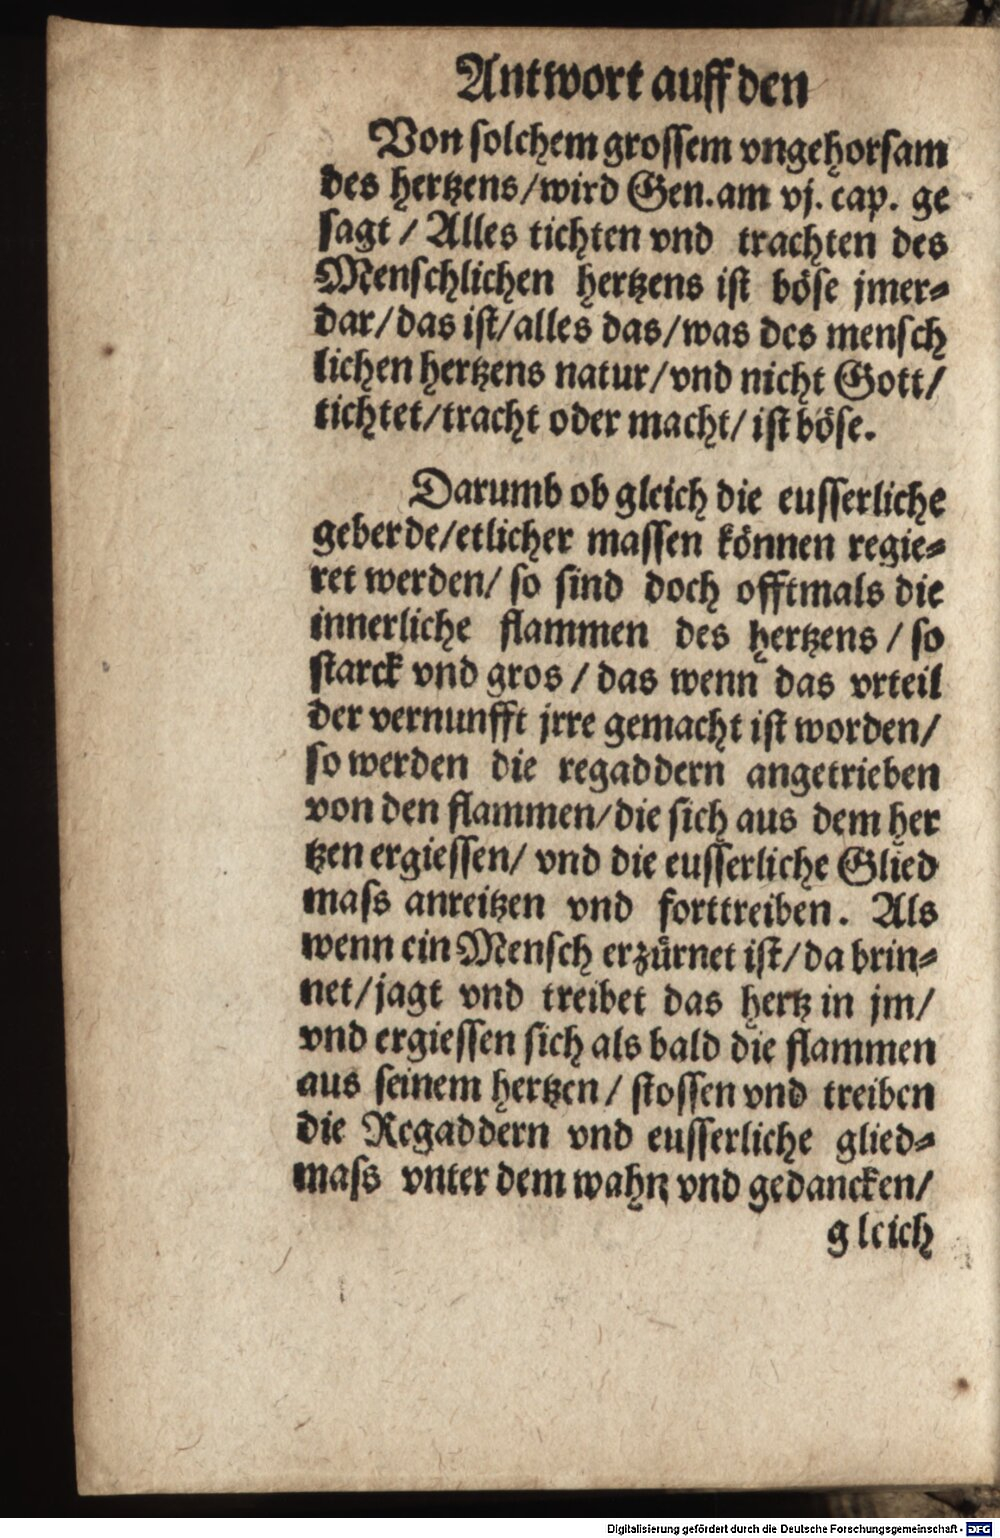 Antwort auff den
Von solchem grossem vngehorsam
des hertzens/wird Gen.am vj. cap. ge
sagt / Alles tichten vnd trachten des
Menschlichen hertzens ist böse jmer⸗
dar/das ist/alles das/was des mensch
lichen hertzens natur/vnd nicht Gott/
tichtet/tracht oder macht/ ist böse.
Darumb ob gleich die eusserliche
geberde/etlicher massen können regie⸗
ret werden/ so sind doch offtmals die
innerliche flammen des hertzens / so
starck vnd gros / das wenn das vrteil
der vernunfft jrre gemacht ist worden/
so werden die regaddern angetrieben
von den flammen/die sich aus dem her
tzen ergiessen/ vnd die eusserliche Glied
mass anreitzen vnd forttreiben. Als
wenn ein Mensch erzürnet ist/da brin⸗
net/jagt vnd treibet das hertz in jm/
vnd ergiessen sich als bald die flammen
aus seinem hertzen/ stossen vnd treiben
die Regaddern vnd eusserliche glied⸗
mass vnter dem wahn vnd gedancken/
gleich
Digitalisierung gefördert durch die Deutsche Forschungsgemeinschaft - DFG